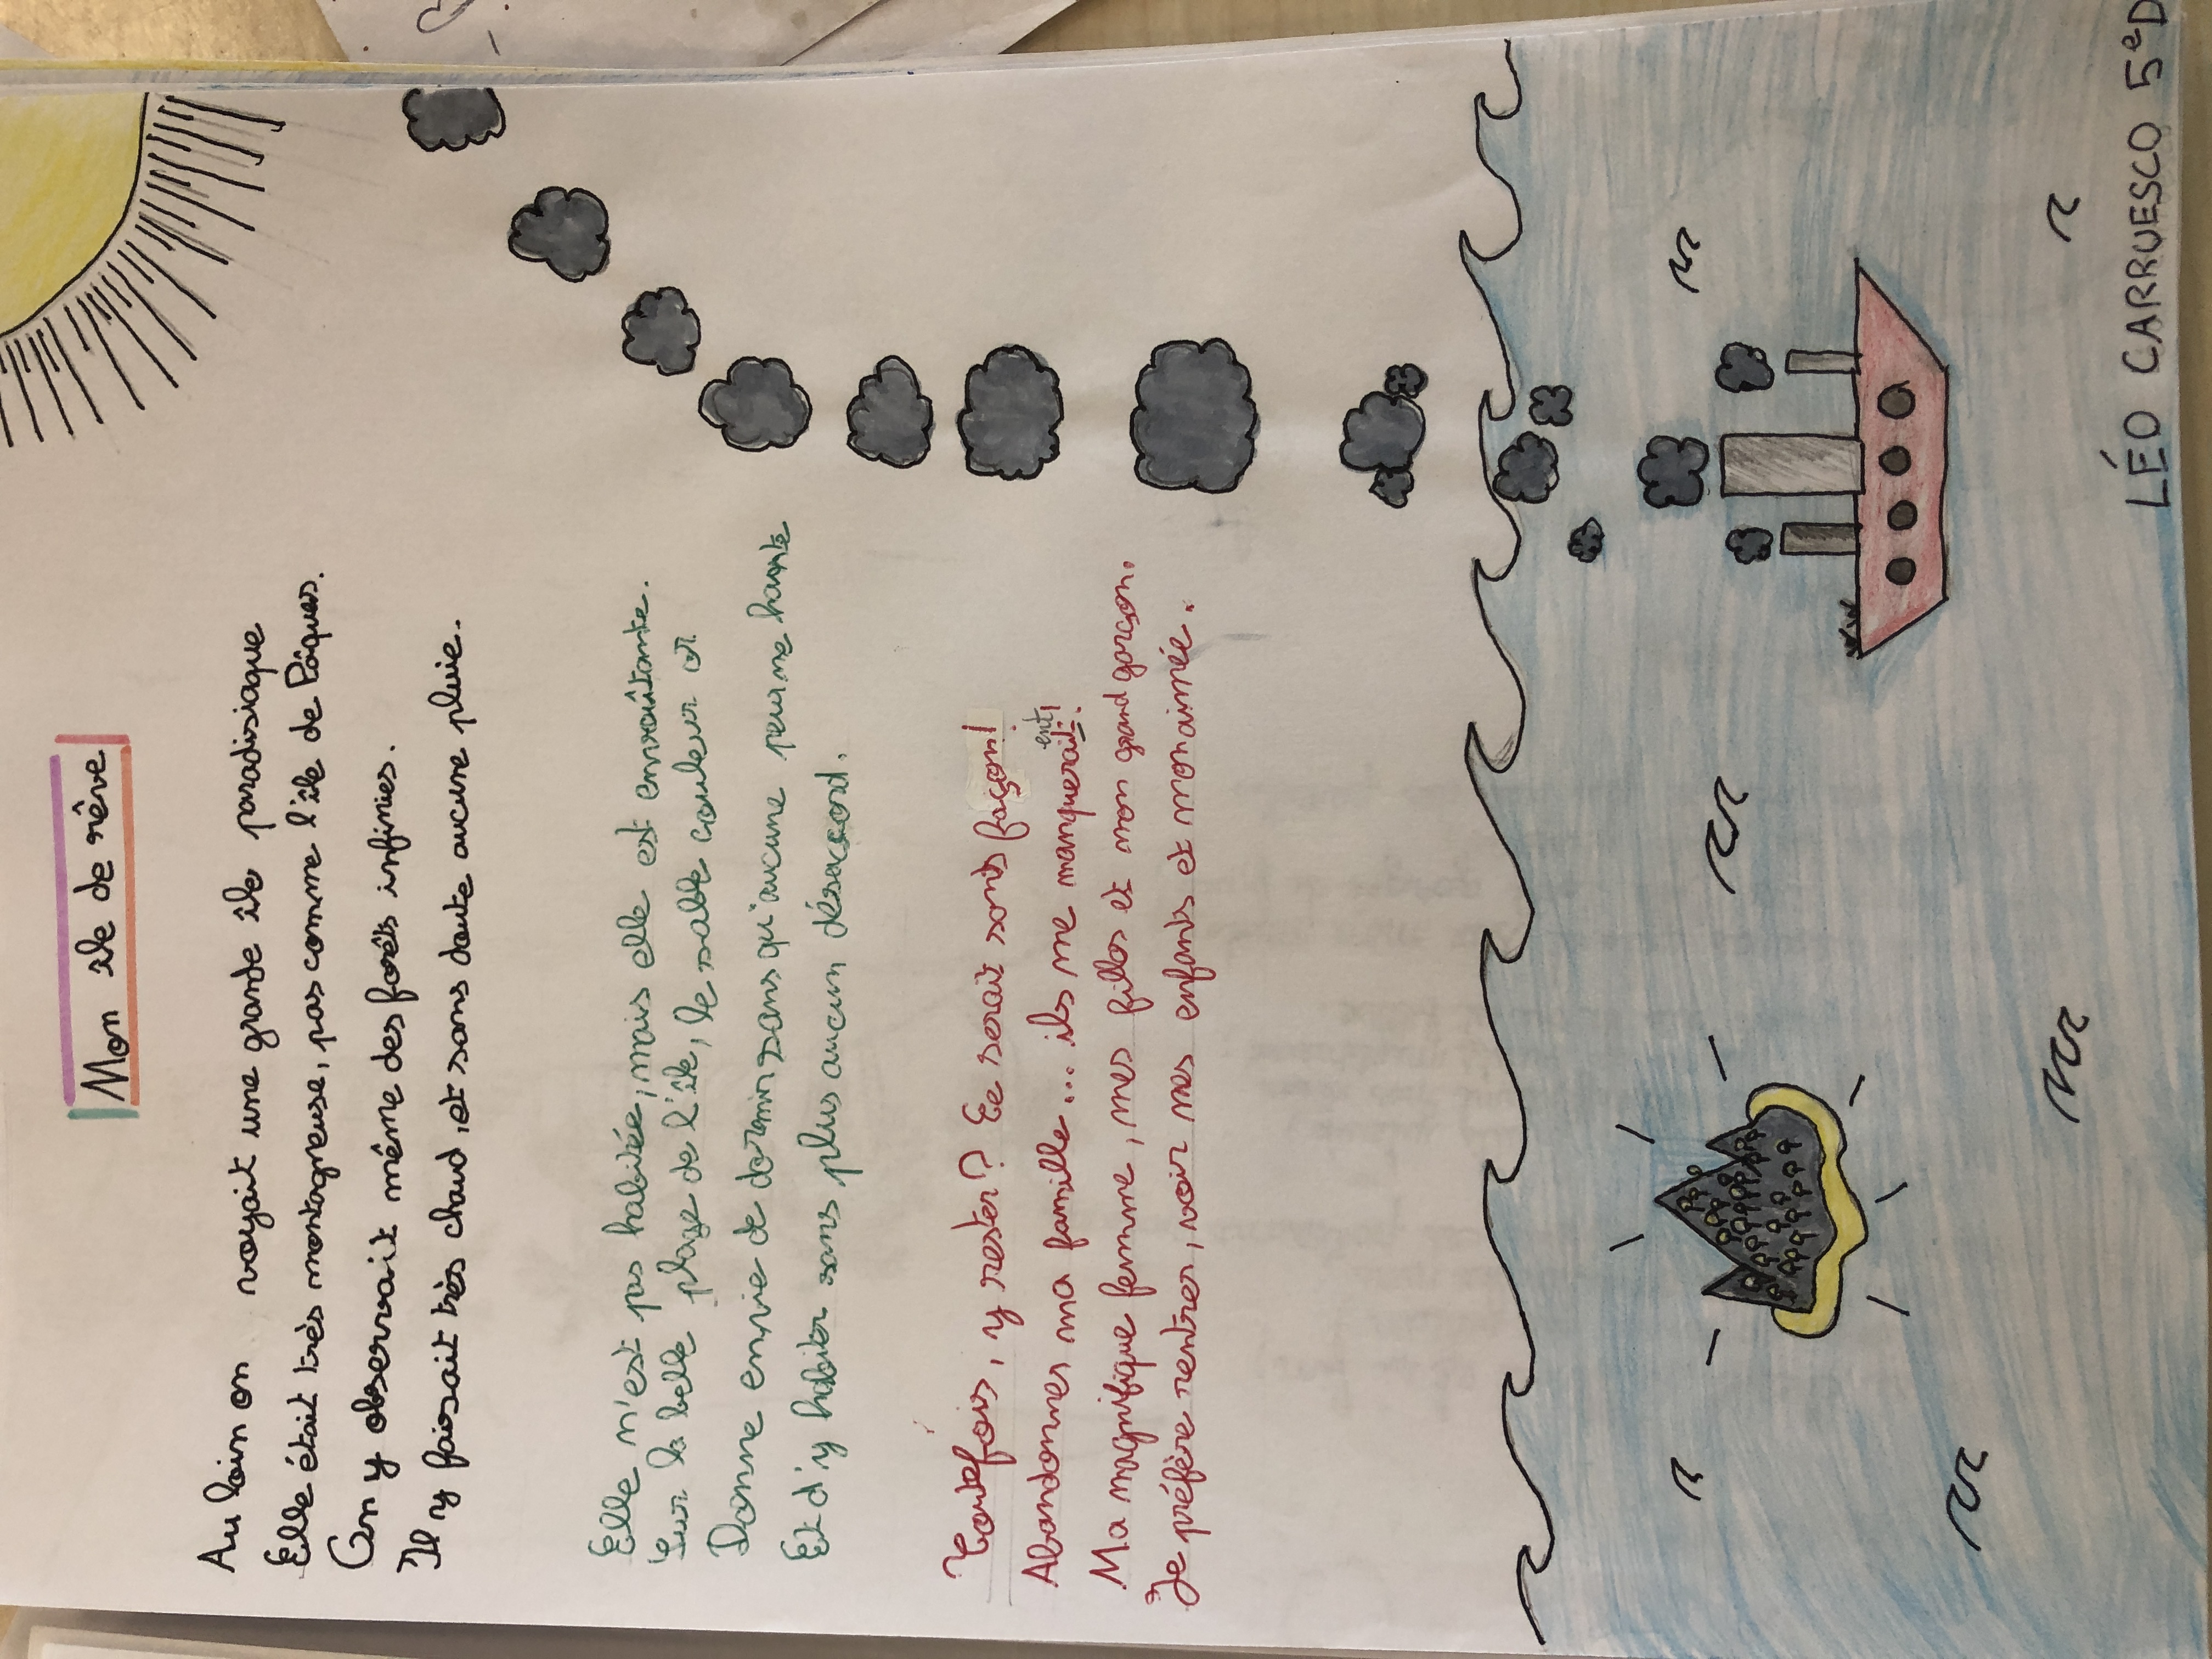 Mon île de rêve
Au loin on voyait une grande île paradisiaque
Elle était très montagneuse, pas comme l'île de Pâques.
On y observait même des forêts infinies.
Il y faisait très chaud, et sans doute aucune pluie.
Elle n'est pas habitée, mais elle est envoûtante.
Sur la belle plage de l'île, le sable couleur or
Donne envie de dormir sans qu'aucune peur me hante
Et d'y habiter sans plus aucun désaccord.
Toutefois, y rester? Ce serait sans façon!
Abandonner ma famille... ils me manquerait!
ent
Ma magnifique femme, mes filles et mon grand garçon.
Je préfère rentrer, voir mes enfants et mon aimée.
LÉO CARRUESCO 5eD